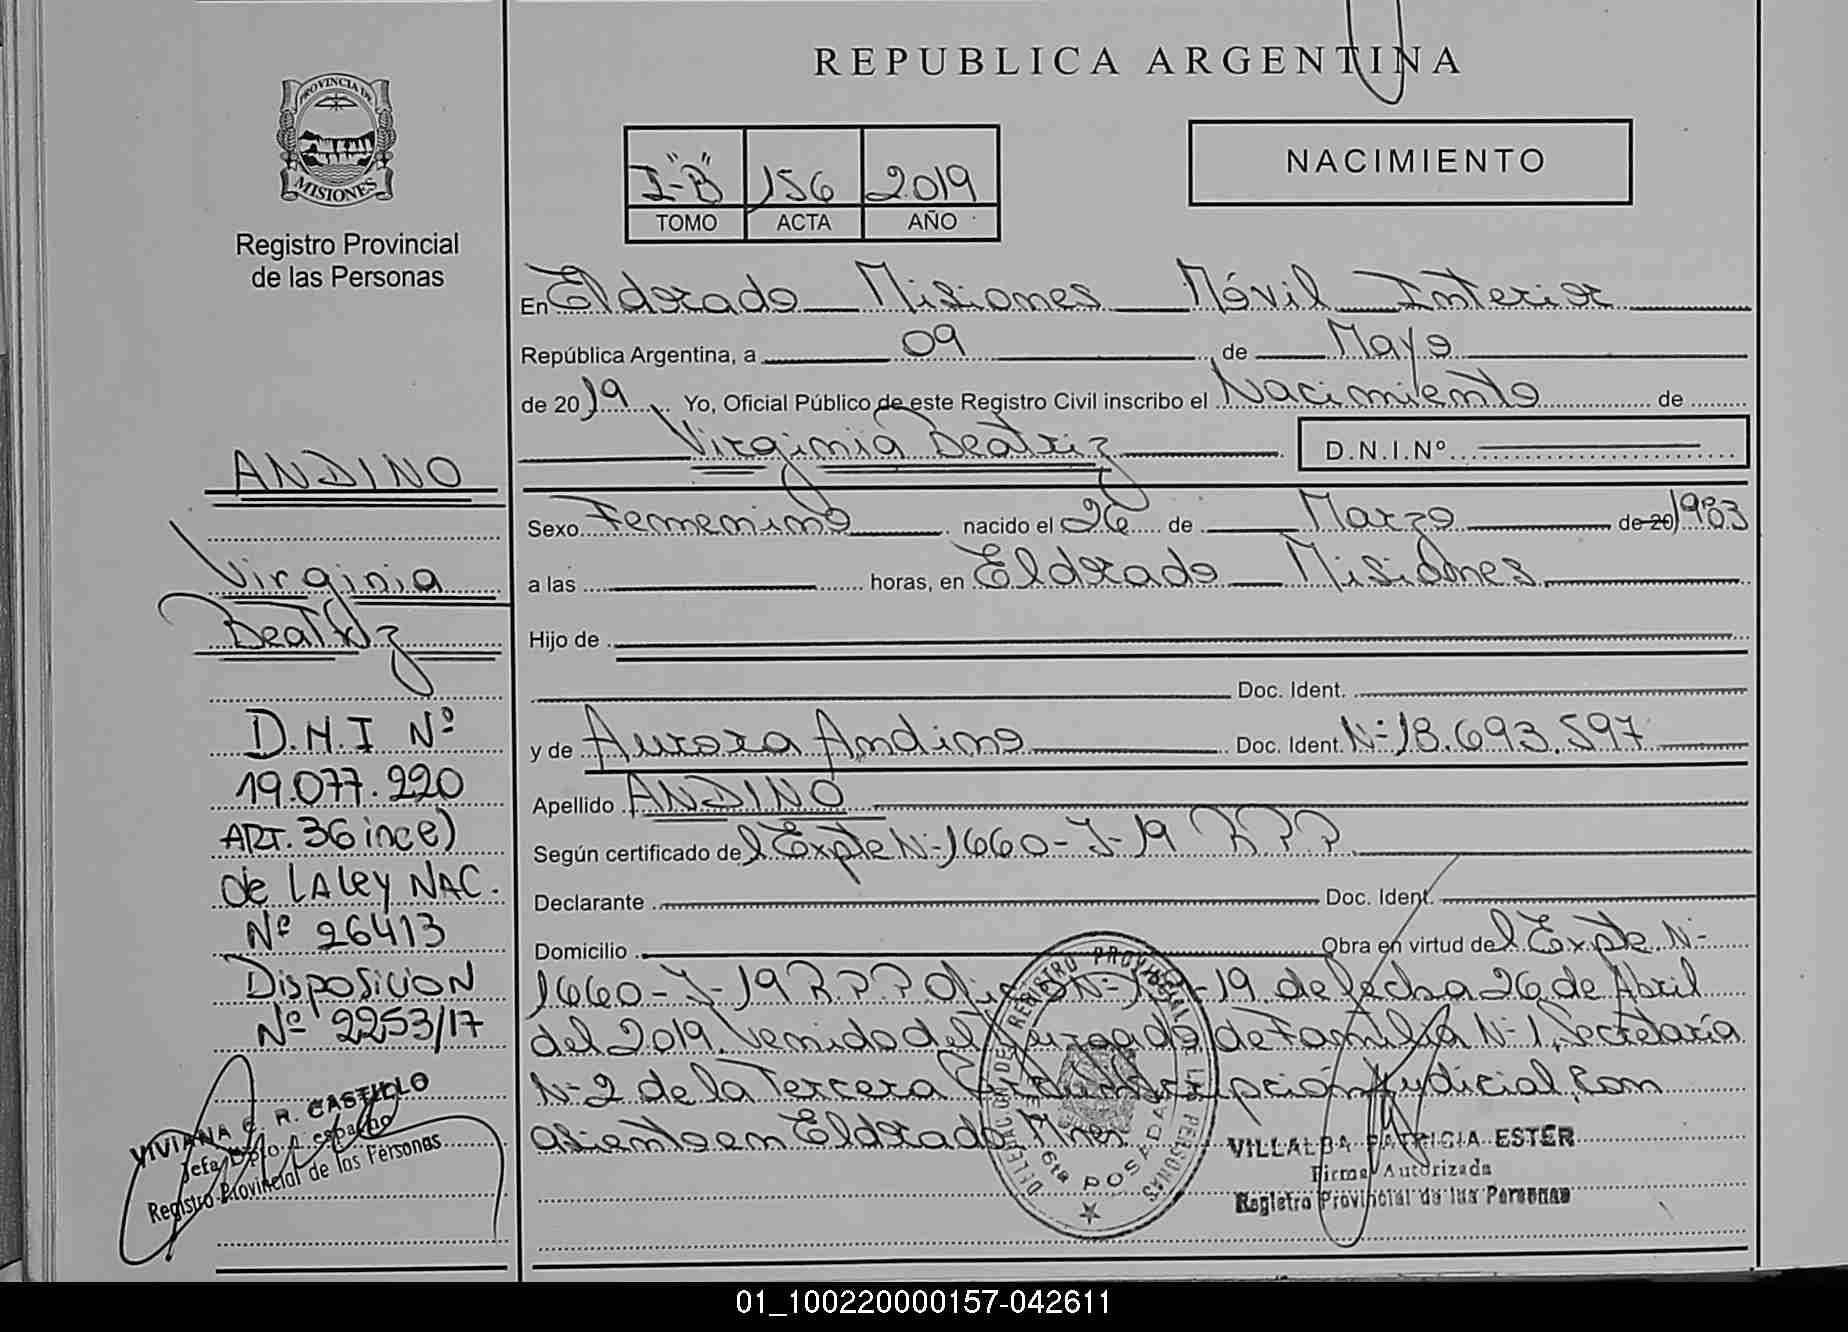 REPUBLICA ARGENTINA
PROVINCIA DE
MISIONES
Registro Provincial
de las Personas
I-"B" 156 2019
TOMO ACTA AÑO
NACIMIENTO
En Eldorado Misiones Móvil Interior
República Argentina, a 09 de Mayo
de 2019 Yo, Oficial Público de este Registro Civil inscribo el Nacimiento de
Virginia Beatriz D.N.I.Nº
Sexo Femenino nacido el 26 de Marzo de 20 1983
a las horas, en Eldorado Misiones
Hijo de
Doc. Ident.
y de Aurora Andino Doc. Ident. N-18.693.597
Apellido ANDINO
Según certificado del Expte N-1660-J-19 R.P.P
Declarante Doc. Ident.
Domicilio Obra en virtud del Expte N-
1660-J-19 R.P.P Oficio N- -19 de fecha 26 de Abril
del 2019. Venido del Juzgado de Familia N-1, Secretaría
N-2 de la Tercera Circunscripción Judicial, con
asiento en Eldorado Mnes
ANDINO
Virginia
Beatriz
D.N.I Nº
19.077.220
ART. 36 inc e)
de LA Ley NAC.
Nº 26413
DisposiciON
Nº 2253/17
VIVIANA C. R. CASTILLO
Jefa Dpto.
Registro Provincial de las Personas
REGISTRO PROVINCIAL DE LAS PERSONAS
6ta
POSADAS
VILLALBA PATRICIA ESTER
Firma Autorizada
Registro Provincial de las Personas
01_100220000157-042611